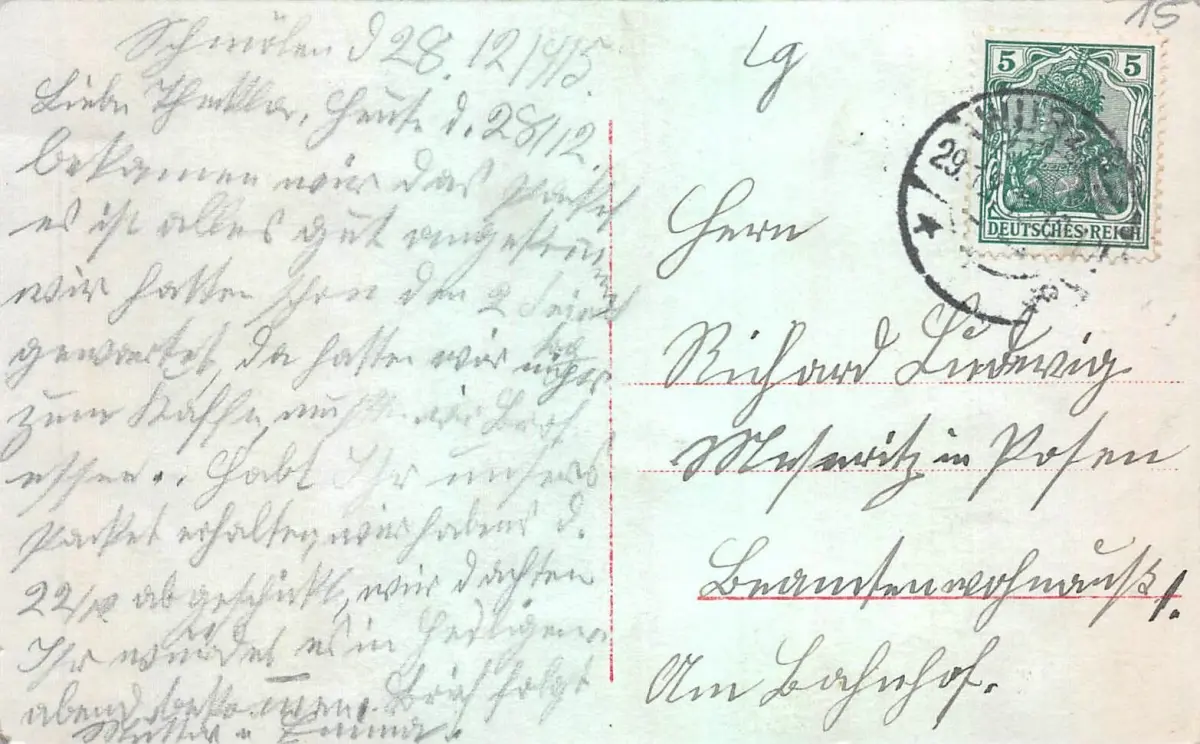 Schmölen d 28.12/15.
Liebe Thekla, Heute d. 28/12.
bekamen wir das Packet
es ist alles gut angekommen
wir hatten schon den 2 Feiertag
gewartet, da hatten wir nichts
zum Kaffe, mußten wir Brot
essen.. Habt Ihr unsers
Packet erhalten, wir habens d.
22/12 abgeschickt, wir dachten
Ihr würdet es in Heiligen
abend bekommen. Brief folgt
Mutter u Emma.
15
5 5
DEUTSCHES REICH
29.
Herrn
Richard Ludwig
Meseritz in Posen
Beamtenwohnhauß 1.
Am Bahnhof.